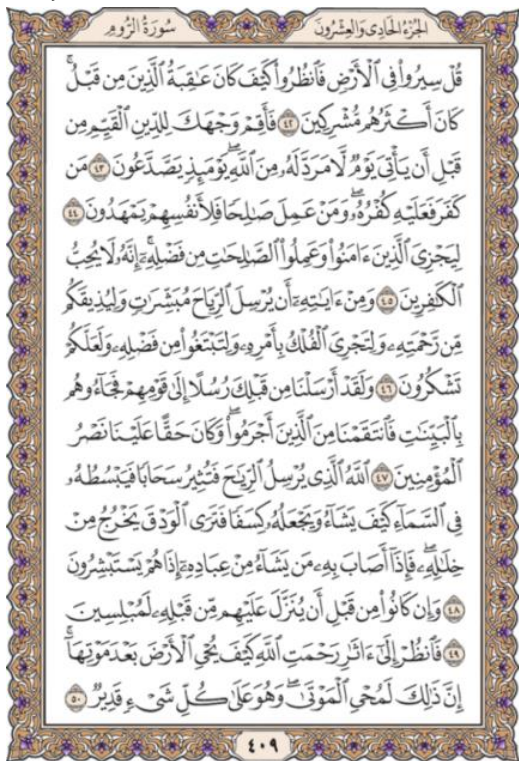 الجزء الحادي والعشرون سورة الروم
قُلْ سِيرُوا۟ فِى ٱلْأَرْضِ فَٱنظُرُوا۟ كَيْفَ كَانَ عَـٰقِبَةُ ٱلَّذِينَ مِن قَبْلُ ۚ
كَانَ أَكْثَرُهُم مُّشْرِكِينَ ٤٢ فَأَقِمْ وَجْهَكَ لِلدِّينِ ٱلْقَيِّمِ مِن
قَبْلِ أَن يَأْتِىَ يَوْمٌ لَّا مَرَدَّ لَهُۥ مِنَ ٱللَّهِ ۖ يَوْمَئِذٍ يَصَّدَّعُونَ ٤٣ مَن
كَفَرَ فَعَلَيْهِ كُفْرُهُۥ ۖ وَمَنْ عَمِلَ صَـٰلِحًا فَلِأَنفُسِهِمْ يَمْهَدُونَ ٤٤
لِيَجْزِىَ ٱلَّذِينَ ءَامَنُوا۟ وَعَمِلُوا۟ ٱلصَّـٰلِحَـٰتِ مِن فَضْلِهِۦٓ ۚ إِنَّهُۥ لَا يُحِبُّ
ٱلْكَـٰفِرِينَ ٤٥ وَمِنْ ءَايَـٰتِهِۦٓ أَن يُرْسِلَ ٱلرِّيَاحَ مُبَشِّرَٰتٍ وَلِيُذِيقَكُم
مِّن رَّحْمَتِهِۦ وَلِتَجْرِىَ ٱلْفُلْكُ بِأَمْرِهِۦ وَلِتَبْتَغُوا۟ مِن فَضْلِهِۦ وَلَعَلَّكُمْ
تَشْكُرُونَ ٤٦ وَلَقَدْ أَرْسَلْنَا مِن قَبْلِكَ رُسُلًا إِلَىٰ قَوْمِهِمْ فَجَآءُوهُم
بِٱلْبَيِّنَـٰتِ فَٱنتَقَمْنَا مِنَ ٱلَّذِينَ أَجْرَمُوا۟ ۖ وَكَانَ حَقًّا عَلَيْنَا نَصْرُ
ٱلْمُؤْمِنِينَ ٤٧ ٱللَّهُ ٱلَّذِى يُرْسِلُ ٱلرِّيَـٰحَ فَتُثِيرُ سَحَابًا فَيَبْسُطُهُۥ
فِى ٱلسَّمَآءِ كَيْفَ يَشَآءُ وَيَجْعَلُهُۥ كِسَفًا فَتَرَى ٱلْوَدْقَ يَخْرُجُ مِنْ
خِلَـٰلِهِۦ ۖ فَإِذَآ أَصَابَ بِهِۦ مَن يَشَآءُ مِنْ عِبَادِهِۦٓ إِذَا هُمْ يَسْتَبْشِرُونَ
٤٨ وَإِن كَانُوا۟ مِن قَبْلِ أَن يُنَزَّلَ عَلَيْهِم مِّن قَبْلِهِۦ لَمُبْلِسِينَ
٤٩ فَٱنظُرْ إِلَىٰٓ ءَاثَـٰرِ رَحْمَتِ ٱللَّهِ كَيْفَ يُحْىِ ٱلْأَرْضَ بَعْدَ مَوْتِهَآ ۚ
إِنَّ ذَٰلِكَ لَمُحْىِ ٱلْمَوْتَىٰ ۖ وَهُوَ عَلَىٰ كُلِّ شَىْءٍ قَدِيرٌ ٥٠
٤٠٩